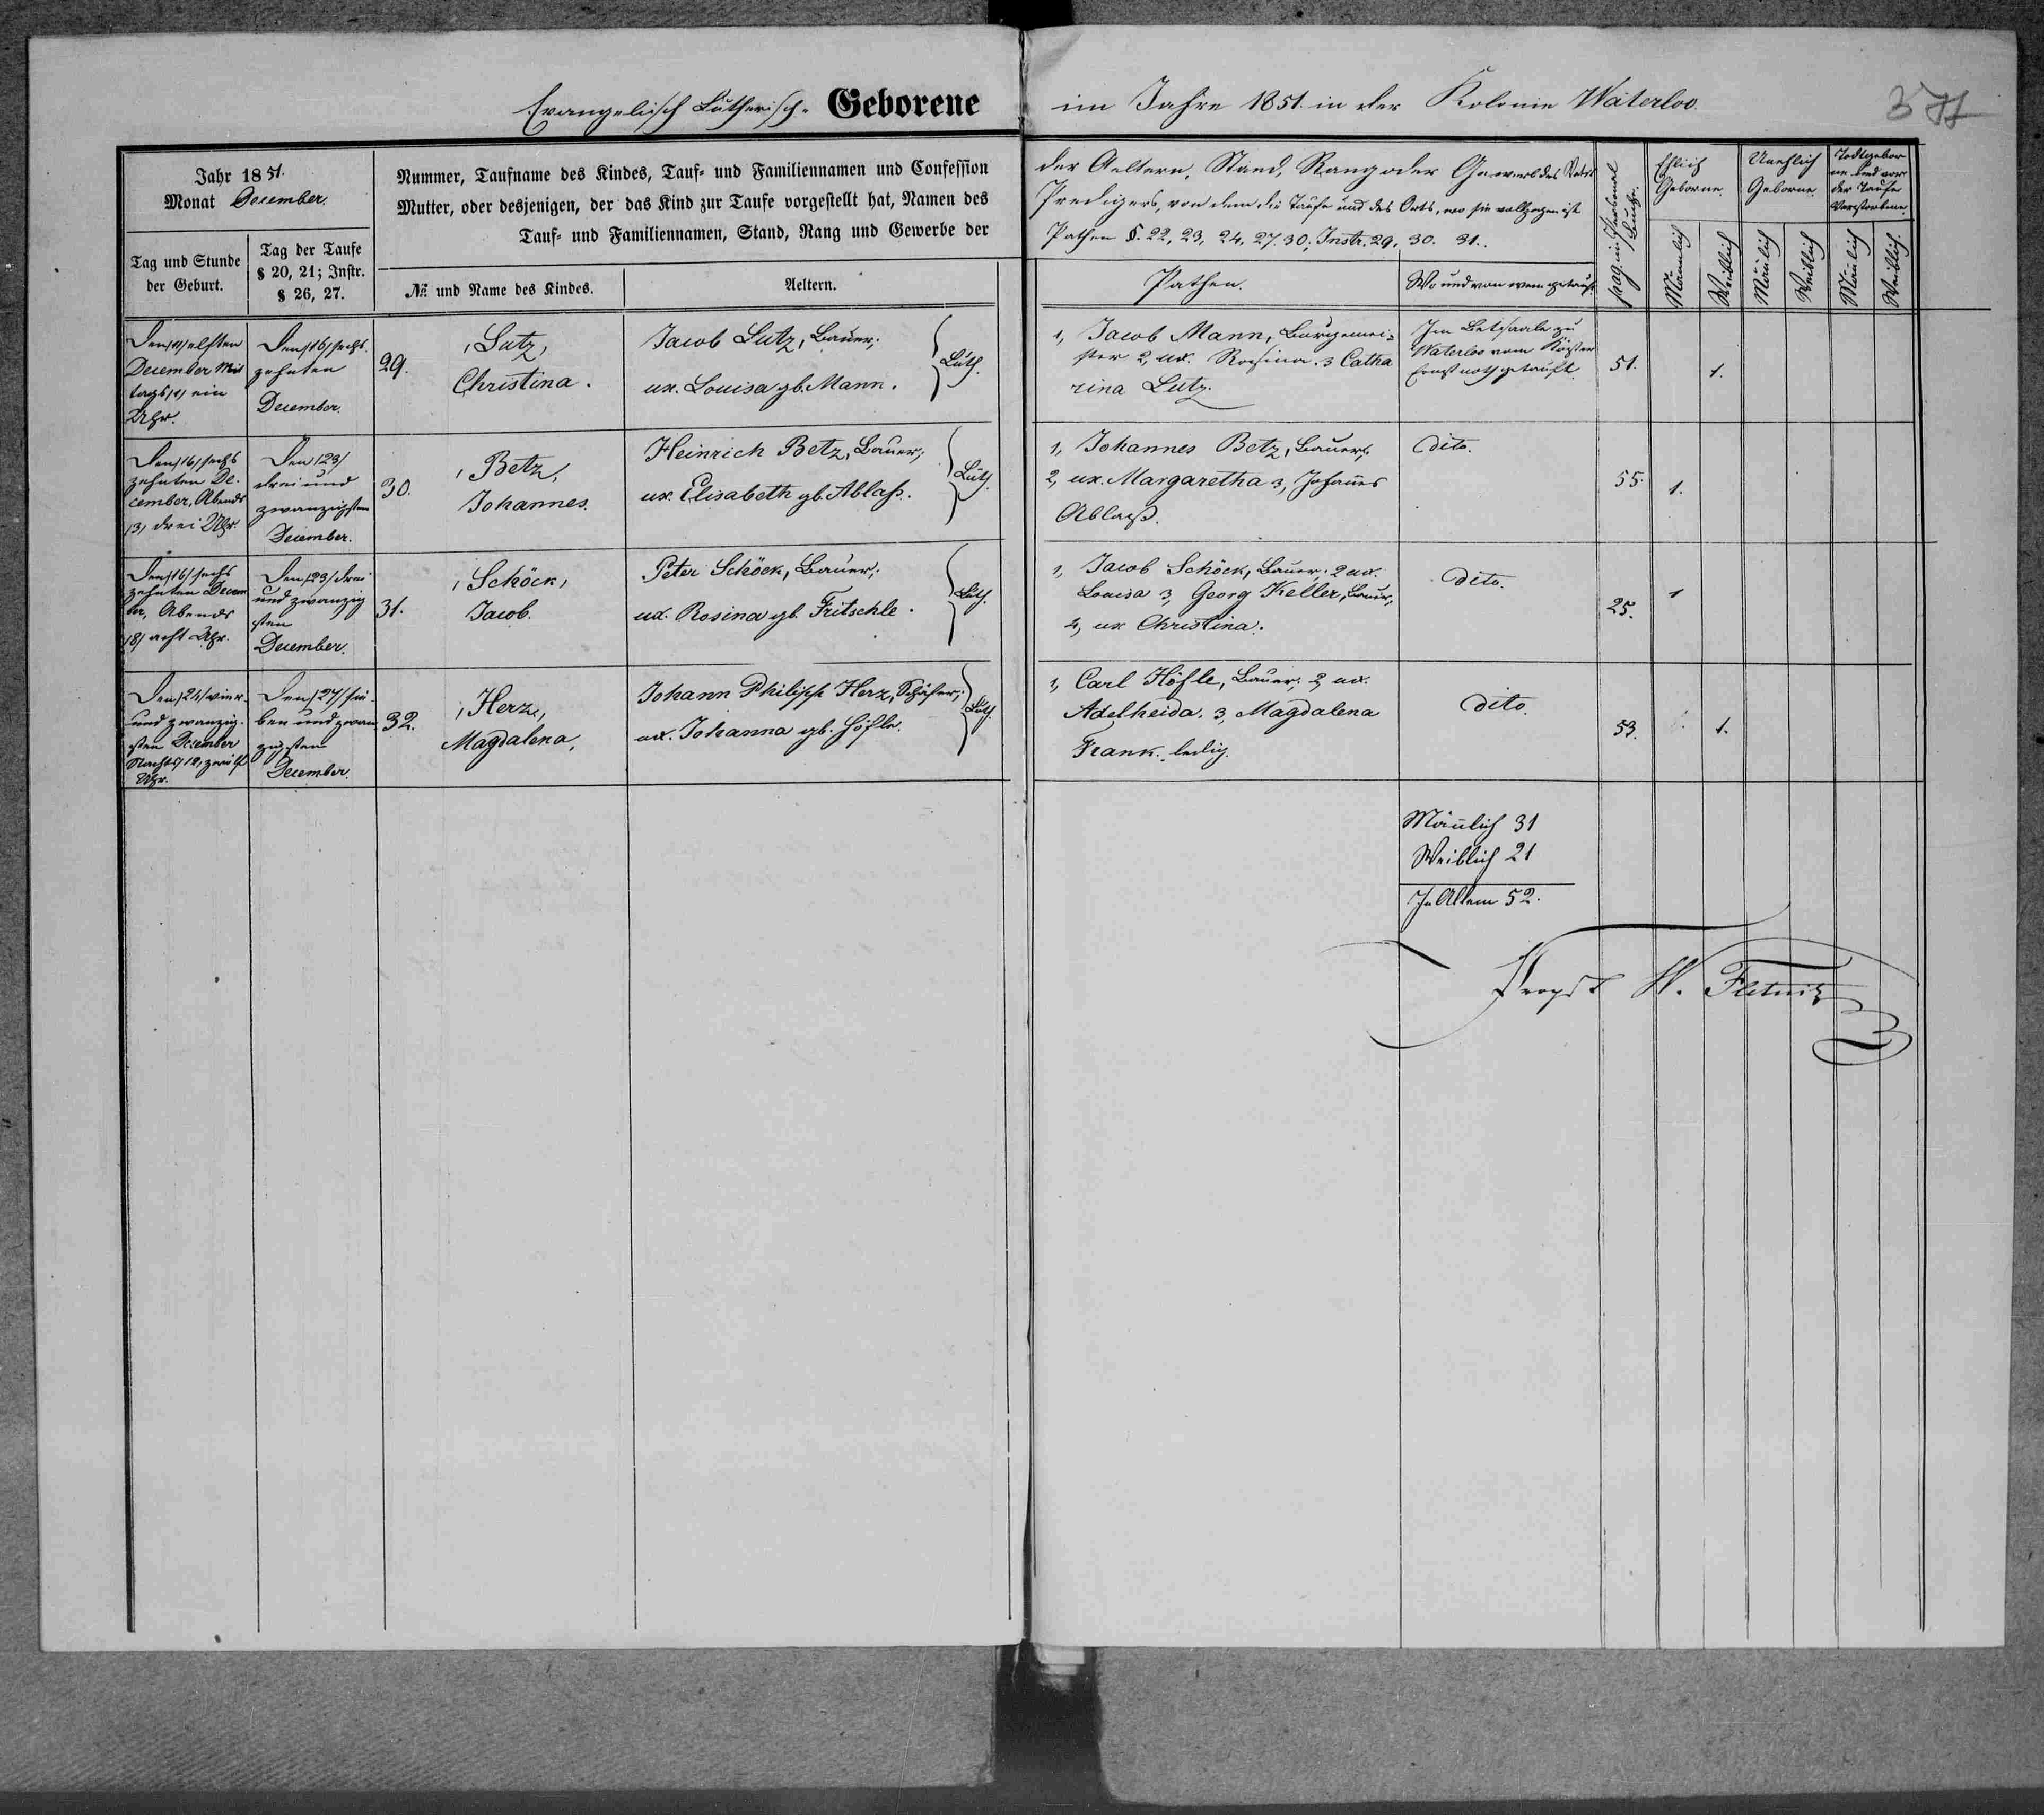 Evangelisch Lütherisch- Geborene im Jahre 1851. in der Kolonie Waterloo.
Jahr 1851.
Monat December.
Tag und Stunde
der Geburt.
Tag der Taufe
§ 20, 21; Instr.
§ 26, 27.
Nummer, Taufname des Kindes, Tauf- und Familiennamen und Confession
Mutter, oder desjenigen, der das Kind zur Taufe vorgestellt hat, Namen des
Tauf- und Familiennamen, Stand, Rang und Gewerbe der
№ und Name des Kindes.
Aeltern.
der Aeltern, Stand, Rang oder Gewerb des Vaters
Predigers, von dem die Taufe und des Orts, wo sie vollzogen ist
Pathen §. 22, 23, 24, 27. 30; Instr. 29, 30. 31.
Pathen.
Wo und von wem getauft
pag. im Personal
Buche.
Ehlich
Geborne.
Unehlich
Geborne
Todtgebor
ne und vor
der Taufe
Verstorbene
Mänlich
Weiblich
Mänlich
Weiblich
Mänlich
Weiblich.
Den /11/ elften
December Mit
tags /1/ ein
Uhr.
Den /16/ sechs-
zehnten
December.
29.
Lutz,
Christina.
Jacob Lutz, Bauer;
ux. Louisa gb. Mann.
Luth.
1, Jacob Mann, Bürgemei-
ster 2, ux. Rosina. 3 Catha
rina Lutz.
Im Betsaale zu
Waterloo vom Küster
Ernst nothgetauft.
51.
1.
Den /16/ sechs
zehnten De-
cember, Abends
/3/ drei Uhr.
Den /23/
drei und
zwanzigsten
December.
30.
Betz,
Johannes.
Heinrich Betz, Bauer;
ux. Elisabeth gb. Ablass.
Luth.
1, Johannes Betz, Bauer,
2, ux. Margaretha 3, Johannes
Ablass.
dito.
55.
1.
Den /16/ sechs
zehnten Decem
ber, Abends
/8/ acht Uhr.
Den /23/ drei
und zwanzig
sten
December.
31.
Schöck,
Jacob.
Peter Schöck, Bauer;
ux. Rosina gb. Fritschle.
Luth.
1, Jacob Schöck, Bauer; 2 ux.
Louisa 3, Georg Keller, Bauer;
4, ux Christina.
dito.
25.
1
Den /24/ vier-
und zwanzig-
sten December
Nachts /12/ zwölf
Uhr.
Den /27/ sie-
ben und zwan
zigsten
December.
32.
Herz,
Magdalena,
Johann Philipp Herz, Schäfer;
ux. Johanna gb. Höfle.
Luth.
1, Carl Höfle, Bauer; 2, ux.
Adelheida. 3, Magdalena
Frank. ledig.
dito.
53.
1.
Mänlich 31
Weiblich 21
In Allem 52.
Propst W. Fletnitz